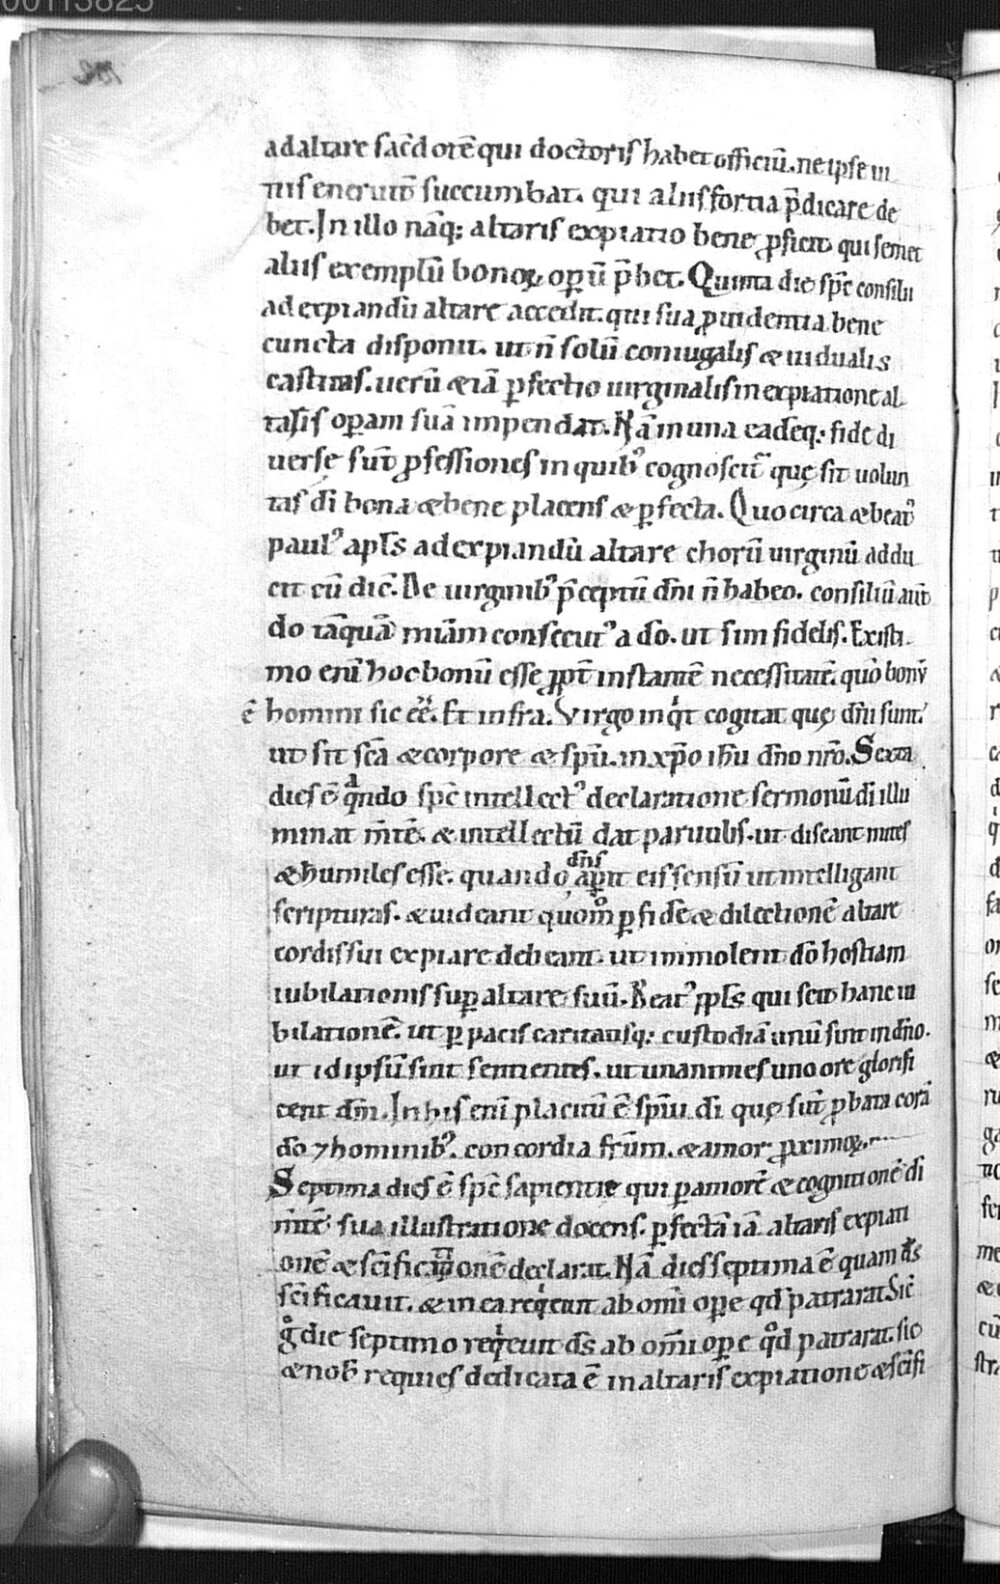 00113825
ad altare sac̄dotē qui doctoris habet officiū. ne ipse in
uis eneruat̄ succumbat. qui aliis fortia p̄dicare de
bet. In illo nāq; altaris expiatio bene ꝓficit qui semet
aliis exemplū bonoꝝ oꝑū p̄bet. Quinta die spc̄ consilii
ad expiandū altare accedit. qui sua ꝓuidentia bene
cuncta disponit. ut n̄ solū coniugalis & uidualis
castitas. uerū & iā ꝑfectio uirginalis in expiatione al
taris oꝑam suā impendat. Nā in una eadēq; fide di
uersę sunt̄ ꝓfessiones in quibꝰ cognoscit᷑ quę sit uolun
tas dī bona & bene placens & ꝑfecta. Quocirca & beatꝰ
paulꝰ apl̄s ad expiandū altare chorū uirginū addu
cit cū dic̄. De uirginibꝰ p̄ceptū dn̄i n̄ habeo. consiliū aut̄
do tāquā miām consecutꝰ a dō. ut sim fidelis. Existi
mo enī hoc bonū esse ꝓpt̄ instantē necessitatē. quō bonū
ē homini sic eē. Et infra. Virgo inqͥt cogitat quę dn̄i sunt.
ut sit sc̄a & corpore & spū. in xp̄o ihū dn̄o nr̄o. Sexta
dies ē qͣndo spc̄ intellectꝰ declaratione sermonū dī illu
minat m̄tē. & intellectū dat paruulis. ut discant mites
& humiles esse. quando dn̄s aꝑit eis sensū ut intelligant
scripturas. & uideant quom̊ ꝑ fidē & dilectionē altare
cordis sui expiare debeant. ut immolent dō hostiam
iubilationis suꝑ altare suū. Beatꝰ ppl̄s qui scit hanc iu
bilationē. ut ꝑ pacis caritatisq; custodiā unū sint in dn̄o.
ut id ipsū sint sentientes. ut unanimes uno ore glorifi
cent dm̄. In his enī placitū ē spīui dī quę sunt̄ ꝓbata corā
dō ⁊ hominibꝰ. concordia frūm. & amor ꝓximoꝝ.
Septima dies ē spc̄ sapientie qui ꝑ amorē & cognitionē dī
m̄tē sua illustratione docens. ꝑfectā iā altaris expiati
onē & sc̄ificationē declarat. Nā dies septima ē quam ds̄
sc̄ificauit. & in ea reqͥeuit ab omī oꝑe qd̄ patrarat. Sic̄
gͦ die septimo reqͥeuit ds̄ ab om̄i oꝑe qͦd patrarat. sic
& nob̄ requies dedicata ē in altaris expiatione & sc̄ifi